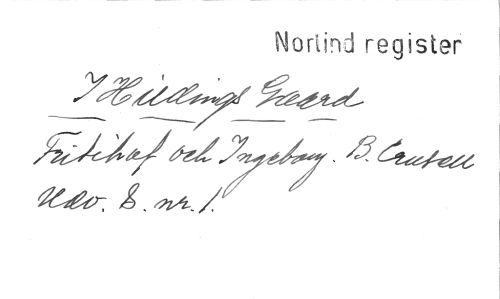 Norlind register
I Hildings Gaard
Frithiof och Ingeborg. B. Crusell
Udv. S. nr. 1.